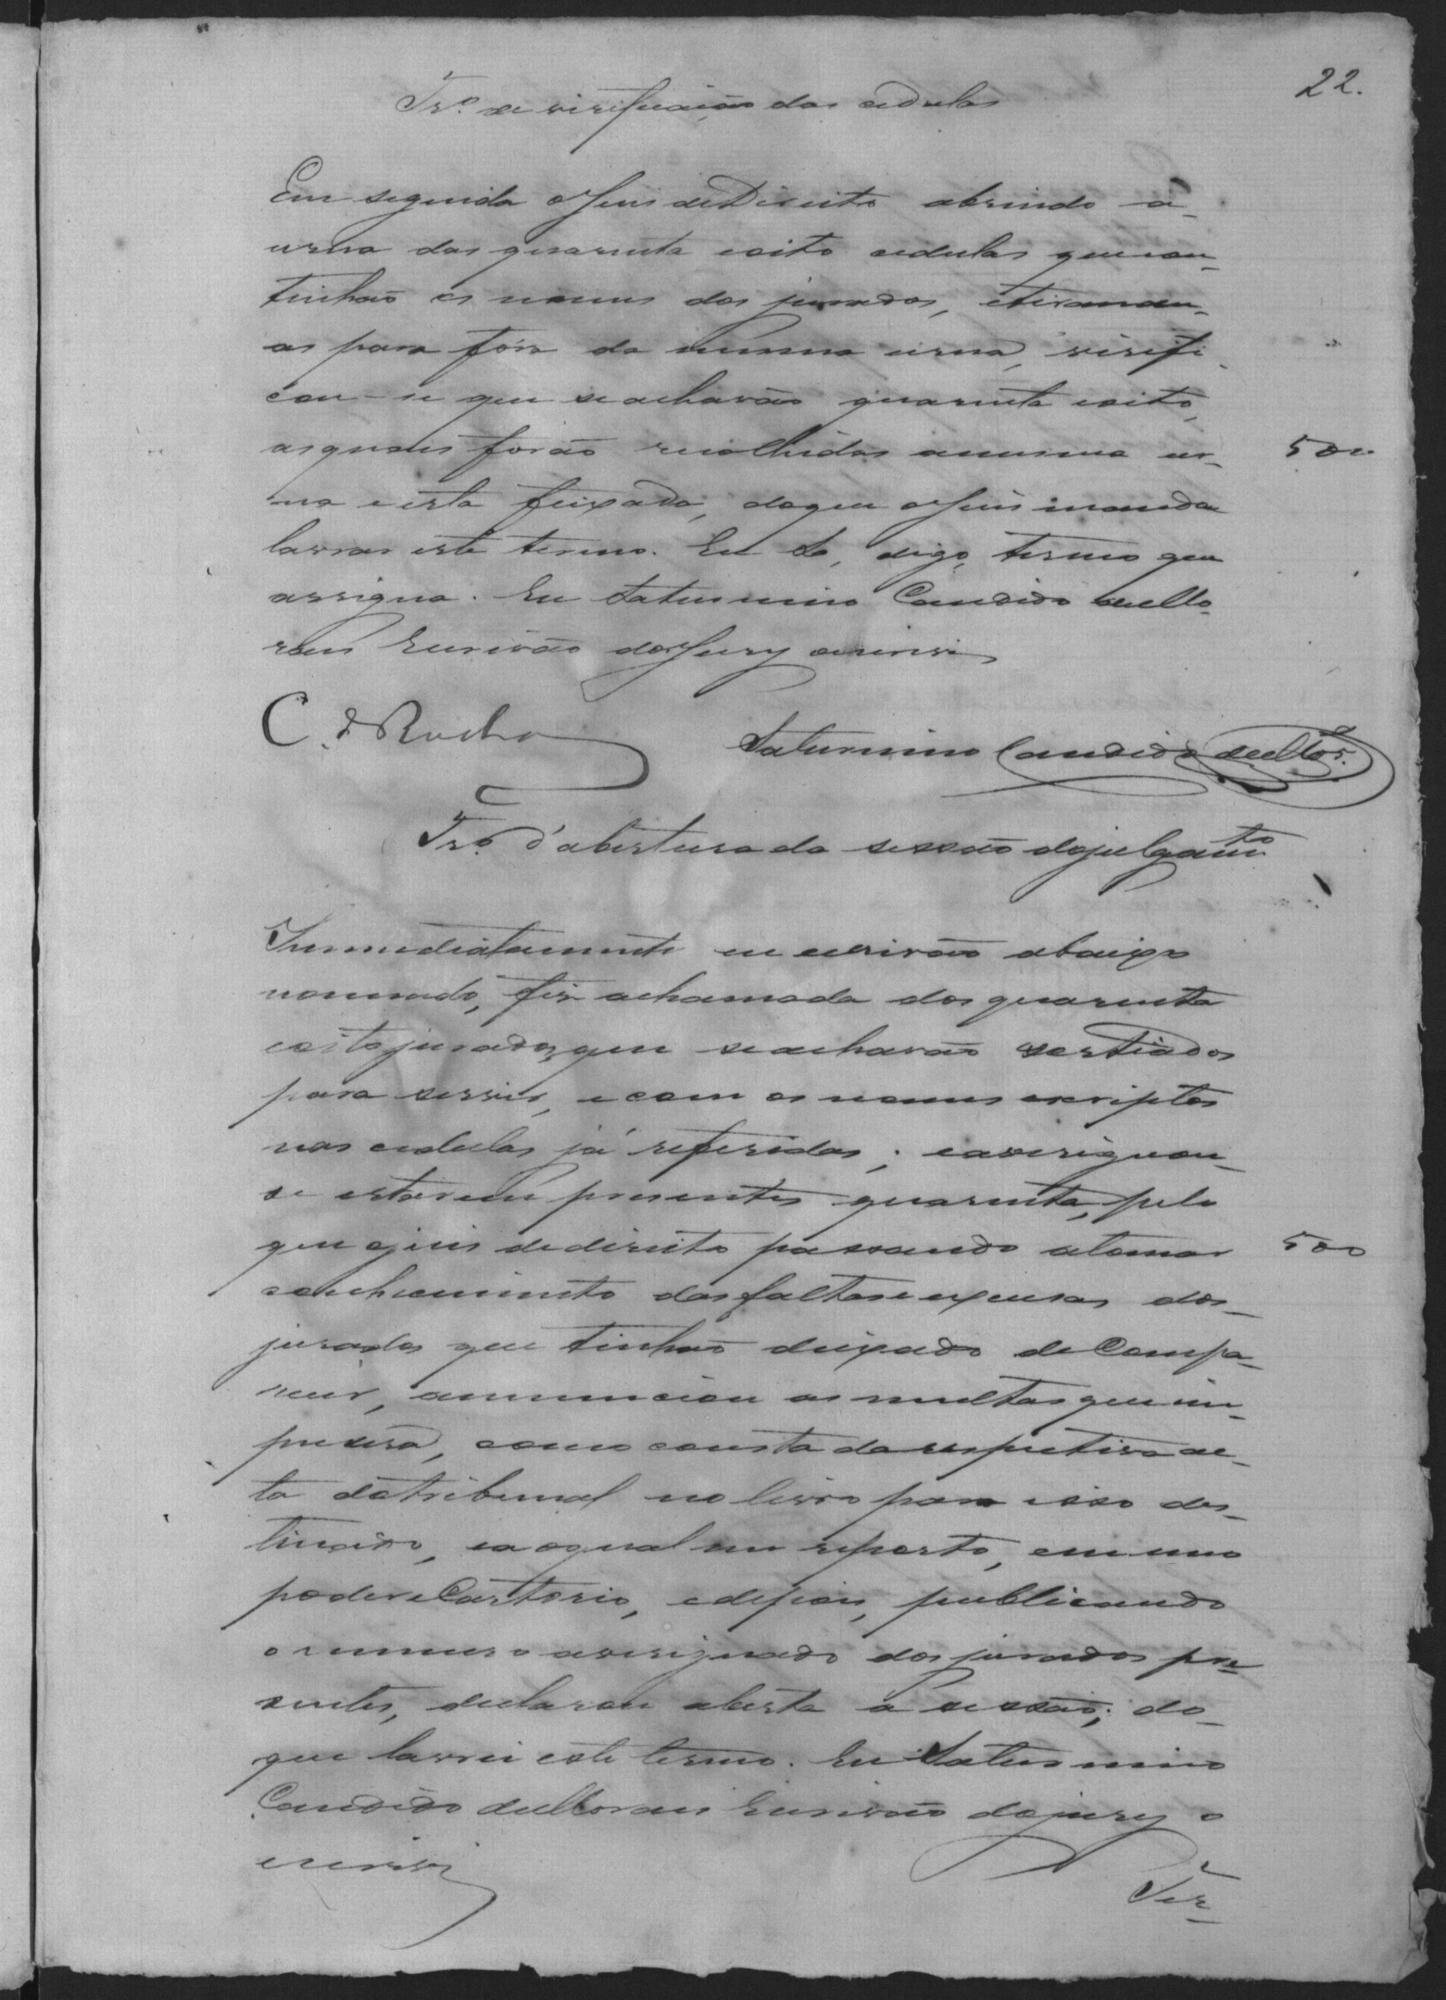 22.
Tr.º de virificação das cedulas
Em seguida o Juis de Direito abrindo a
urna das quarenta e oito cedulas que con-
tinhão os nomes dos jurados, e tirando-
as para fóra da mesma urna, virifi-
cou-se que se achavão quarenta e oito,
as quaes forão recolhidas a mesma ur-
na e esta feixada, do que o Juis manda
lavrar este termo. Eu Sa, digo, termo que
assigna. Eu Saturnino Candido de Mo-
raes Escrivão do Jury o escrevi
500
C. da Rocha
Saturnino Candido de Mor.
Tr.º d'abertura da sessão do julgam.to
Immediatamente eu escrivão abaixo
nomeado, fiz a chamada dos quarenta
e oito jurados, que se achavão sortiados
para servir, e com os nomes escriptos
nas cedulas já referidas; e averiguou-
se estarem presentes quarenta, pelo
que o juis de direito passando a tomar
500
conhecimento das faltas e excusas dos
jurados que tinhão deixado de Compa-
recer, annunciou as multas que im-
puséra, como consta da respectiva ac-
ta do tribunal no livro para isso des-
tinado, e a o qual me reporto, em meo
poder e Cartorio, e depois, publicando
o numero averiguado dos jurados pre-
sentes, declarou aberta a sessão; do
que lavrei este termo. Eu Saturnino
Candido de Moraes Escrivão do jury o
escrevi
Ter-